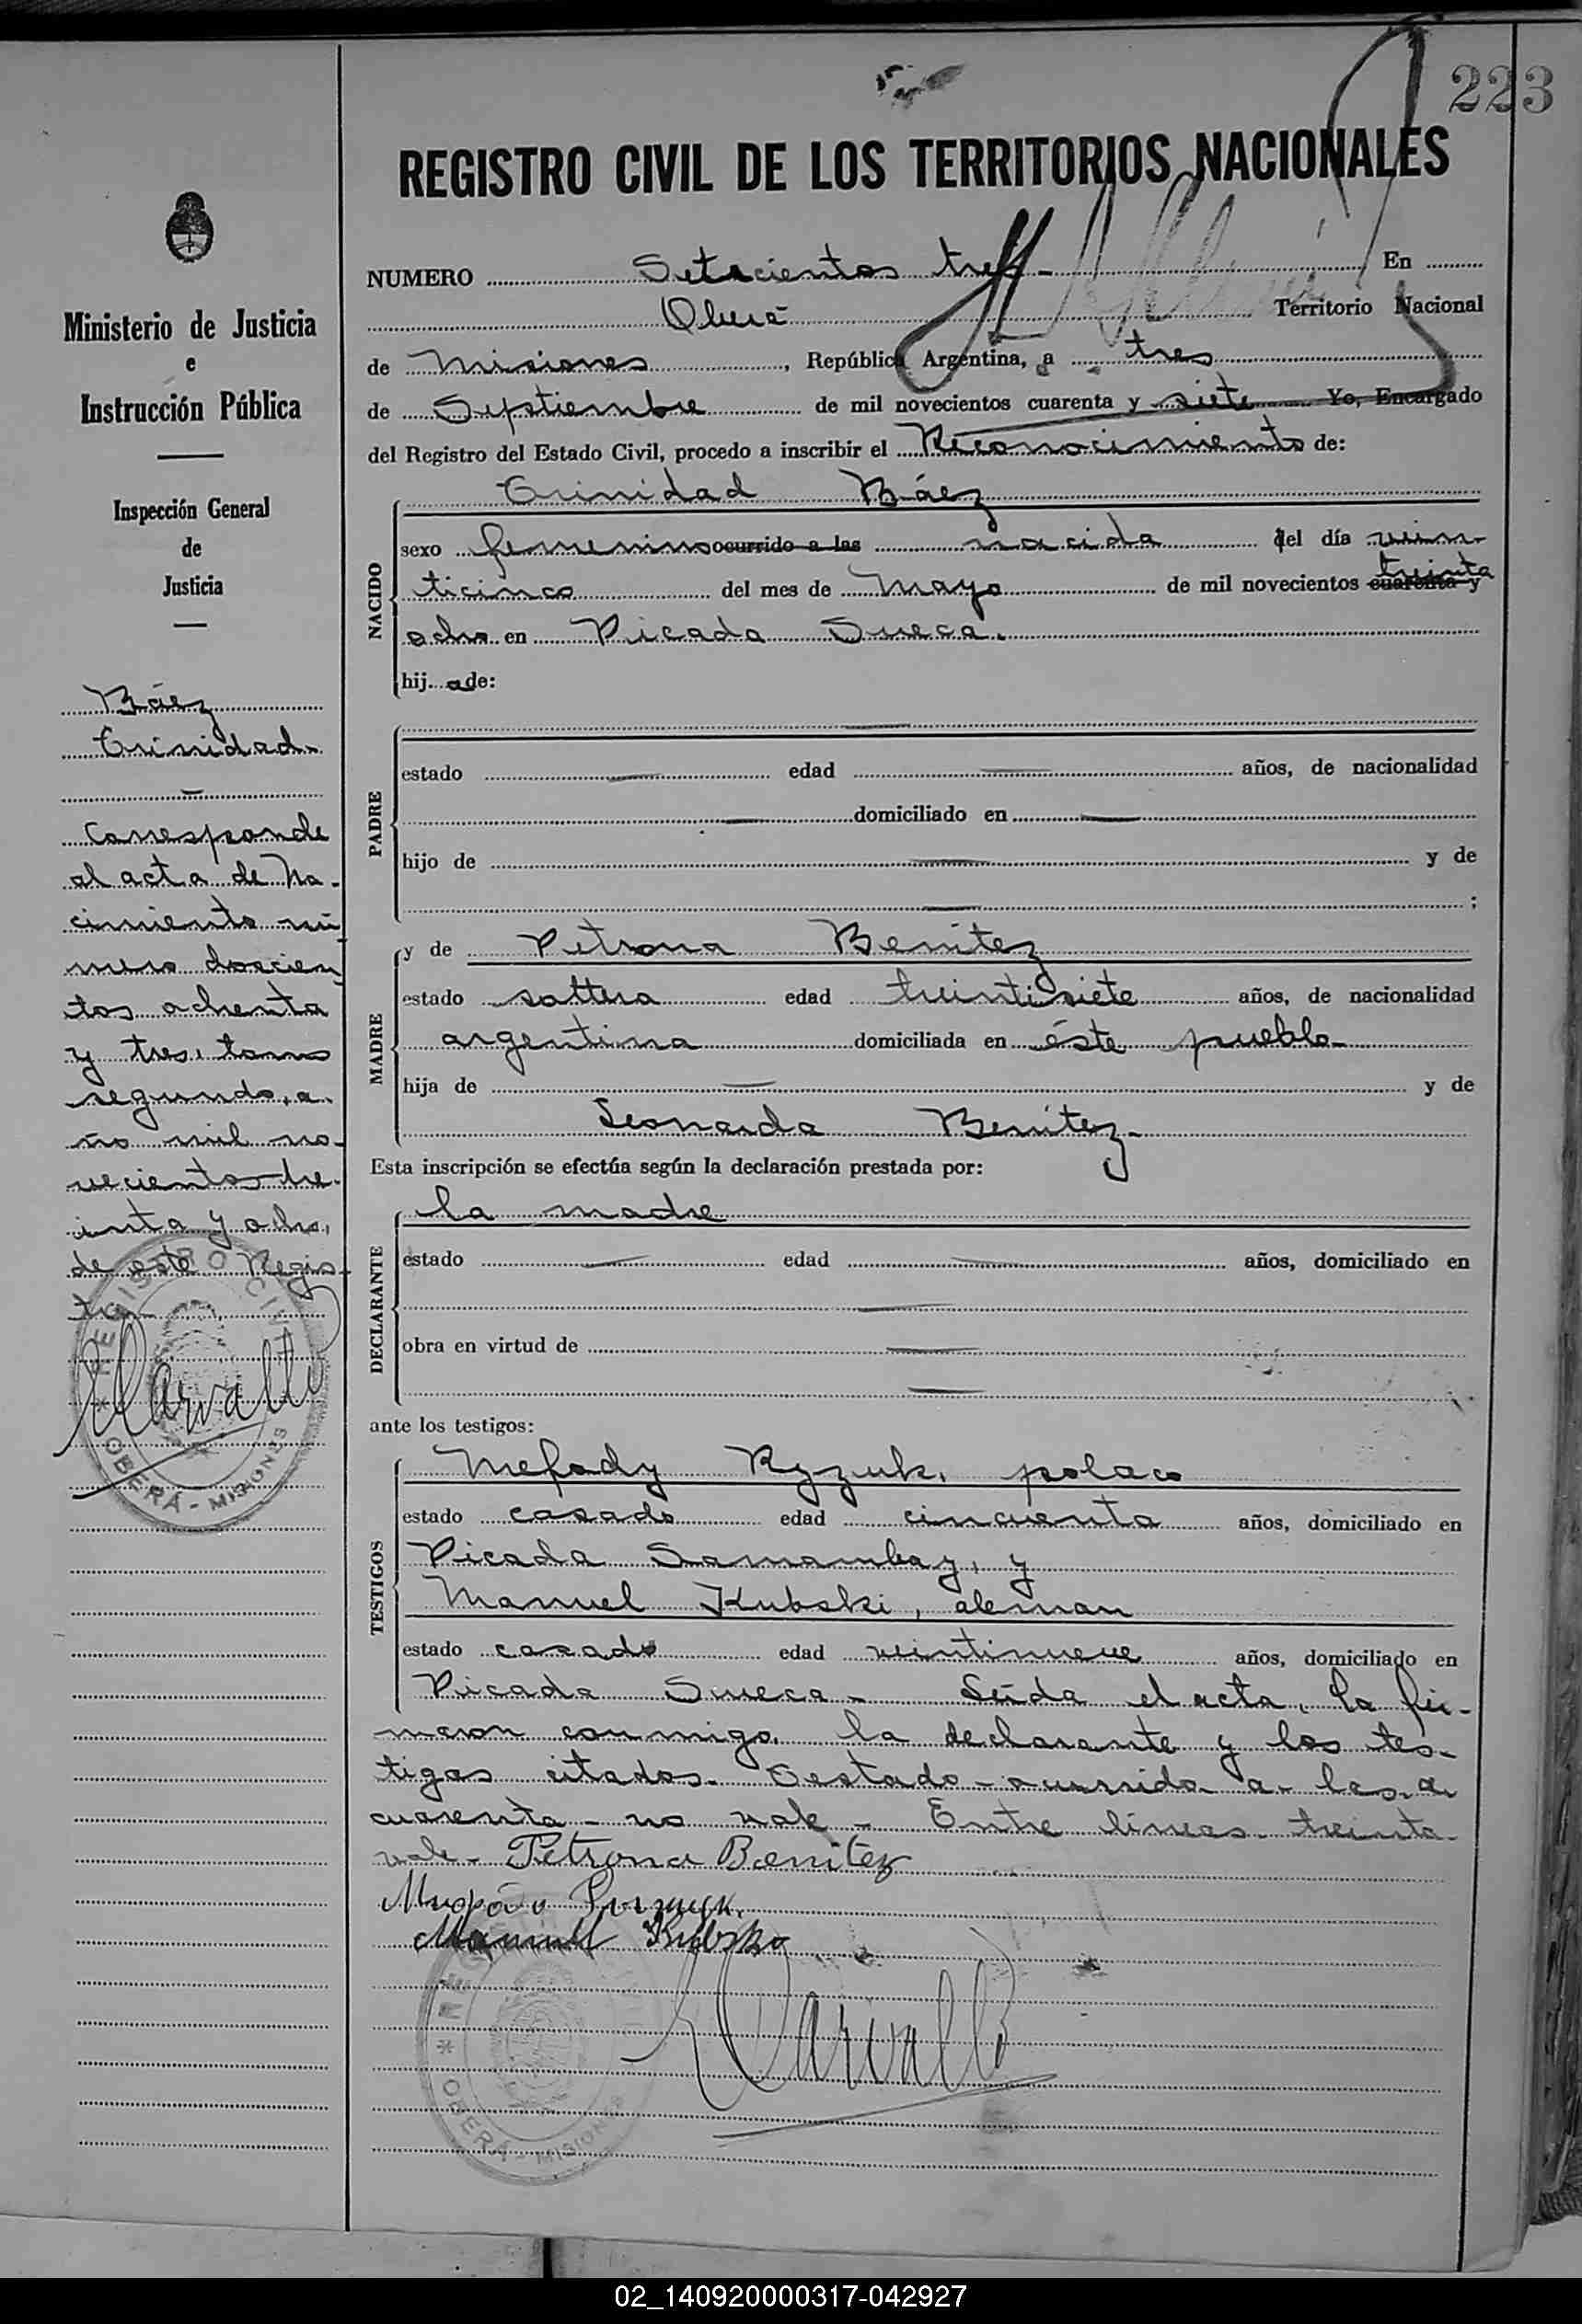 223
REGISTRO CIVIL DE LOS TERRITORIOS NACIONALES
NUMERO Setecientos tres- En
Oberá Territorio Nacional
de Misiones, República Argentina, a tres
de Septiembre de mil novecientos cuarenta y siete Yo, Encargado
del Registro del Estado Civil, procedo a inscribir el Reconocimiento de:
NACIDO
Trinidad Báez
sexo femenino ocurrido a las nacida del día vein-
ticinco del mes de Mayo de mil novecientos cuarenta y treinta
ocho en Picada Sueca.
hija de:
PADRE
estado edad años, de nacionalidad
domiciliado en
hijo de y de
;
MADRE
y de Petrona Benítez
estado soltera edad treintisiete años, de nacionalidad
argentina domiciliada en éste pueblo-
hija de y de
Leonarda Benítez-
Esta inscripción se efectúa según la declaración prestada por:
DECLARANTE
la madre
estado edad años, domiciliado en
obra en virtud de
ante los testigos:
TESTIGOS
Mefody Ryzuk, polaco
estado casado edad cincuenta años, domiciliado en
Picada Samambay, y
Manuel Kubski, aleman
estado casado edad veintinueve años, domiciliado en
Picada Sueca- Leída el acta, la fir-
maron conmigo, la declarante y los tes-
tigos citados- Testado- ocurrido- a- las- a
cuarenta- no vale- Entre líneas- treinta-
vale- Petrona Benitez
Manuel Kubsky
Carvallo
REGISTRO CIVIL
OBERÁ - MISIONES
Ministerio de Justicia
e
Instrucción Pública
Inspección General
de
Justicia
Báez
Trinidad-
Corresponde
al acta de Na-
cimiento nú-
mero doscien
tos ochenta
y tres, tomo
segundo, a-
ño mil no-
vecientos tre-
inta y ocho,
de este Regis-
tro-
Carvallo
REGISTRO CIVIL
OBERÁ - MISIONES
02_140920000317-042927